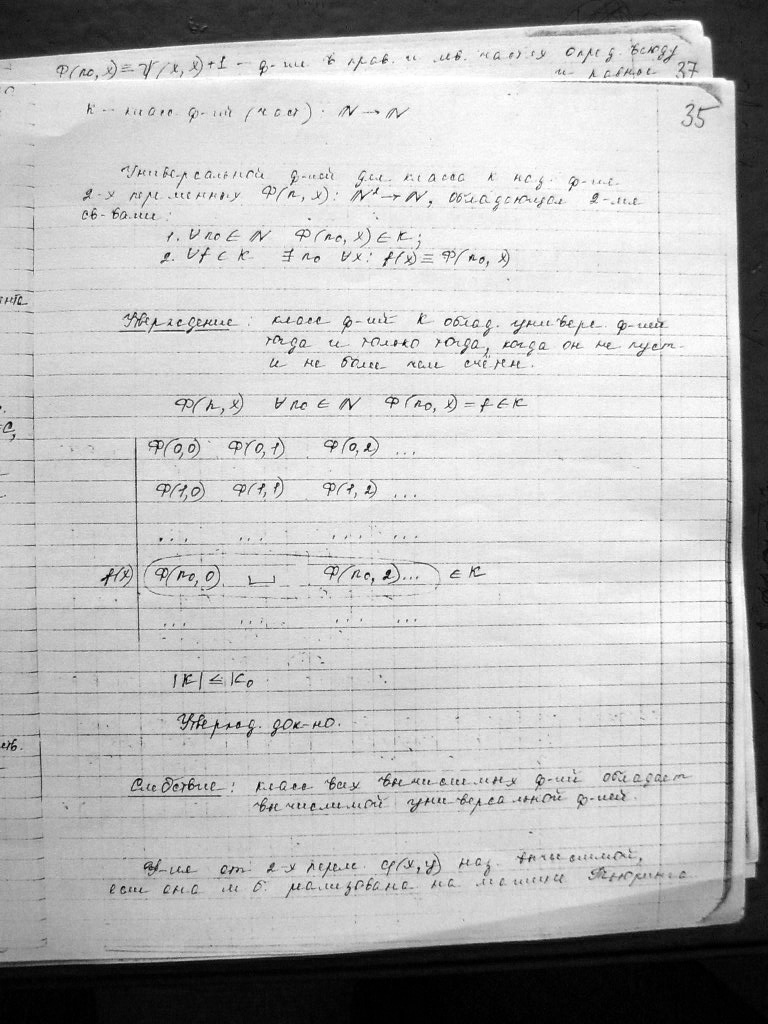 Φ(n₀, x) ≡ ψ(x, x)+1 – ф-ии в прав. и лев. частях опред. всюду
и равно 37
35
K – класс ф-ий (част). ℕ → ℕ
Универсальной ф-ией для класса K наз. ф-ия
2-х переменных Φ(n, x): ℕ² → ℕ, обладающая 2-мя
св-вами:
1. ∀n₀ ∈ ℕ Φ(n₀, x) ∈ K;
2. ∀f ∈ K ∃ n₀ ∀x: f(x) ≡ Φ(n₀, x)
Утверждение: класс ф-ий K облад. универс. ф-ией
тогда и только тогда, когда он не пуст
и не более чем счётен.
Φ(n, x) ∀n₀ ∈ ℕ Φ(n₀, x) = f ∈ K
Φ(0,0) Φ(0,1) Φ(0,2) ...
Φ(1,0) Φ(1,1) Φ(1,2) ...
... ... ... ...
f(x) Φ(n₀, 0) ⌴ Φ(n₀, 2)... ∈ K
... ... ... ...
|K| ≤ ℵ₀
Утвержд. док-но.
Следствие: класс всех вычислимых ф-ий обладает
вычислимой универсальной ф-ией.
Ф-ия от 2-х перем. φ(x, y) наз. вычислимой,
если она м.б. реализована на машине Тьюринга
енто
С,